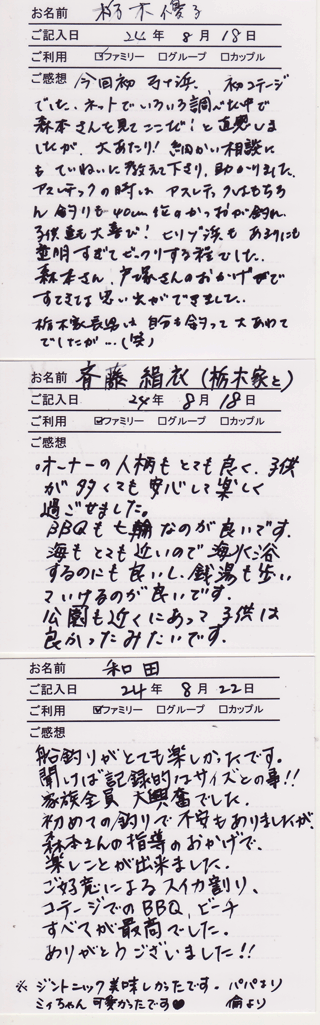 お名前 栃木優子
ご記入日 24年 8月 18日
ご利用 ☑ファミリー □グループ □カップル
ご感想 今回初 弓ヶ浜、初コテージ
でした。ネットでいろいろ調べた中で
森本さんを見てここだ!と直感しま
したが、大あたり! 細かい相談に
もていねいに教えて下さり、助かりました。
アスレチックの時は アスレチックはもちろ
ん 釣りも40cm位のかつおが釣れ
子供達も大喜び! ヒリゾ浜も あまりにも
透明すぎてビックリする程でした。
森本さん、戸塚さんのおかげで
すてきな思い出ができました。
栃木家長男は 自分も釣って 大あわて
でしたが…(笑)
お名前 斉藤絹衣(栃木家と)
ご記入日 24年 8月 18日
ご利用 ☑ファミリー □グループ □カップル
ご感想
・オーナーの人柄もとても良く、子供
が多くても安心して楽しく
過ごせました。
BBQも七輪なのが良いです。
海もとても近いので海水浴
するのにも良いし、銭湯も歩い
ていけるのが良いです。
公園も近くにあって子供は
良かったみたいです。
お名前 和田
ご記入日 24年 8月 22日
ご利用 ☑ファミリー □グループ □カップル
ご感想
船釣りがとても楽しかったです。
聞けば記録的なサイズとの事!!
家族全員 大興奮でした。
初めての釣りで不安もありましたが、
森本さんの指導のおかげで、
楽しことが出来ました。
ご好意によるスイカ割り、
コテージでのBBQ、ビーチ
すべてが最高でした。
ありがとうございました!!
※ ジントニック美味しかったです。パパより
ミィちゃん可愛かったです♥ 倫より